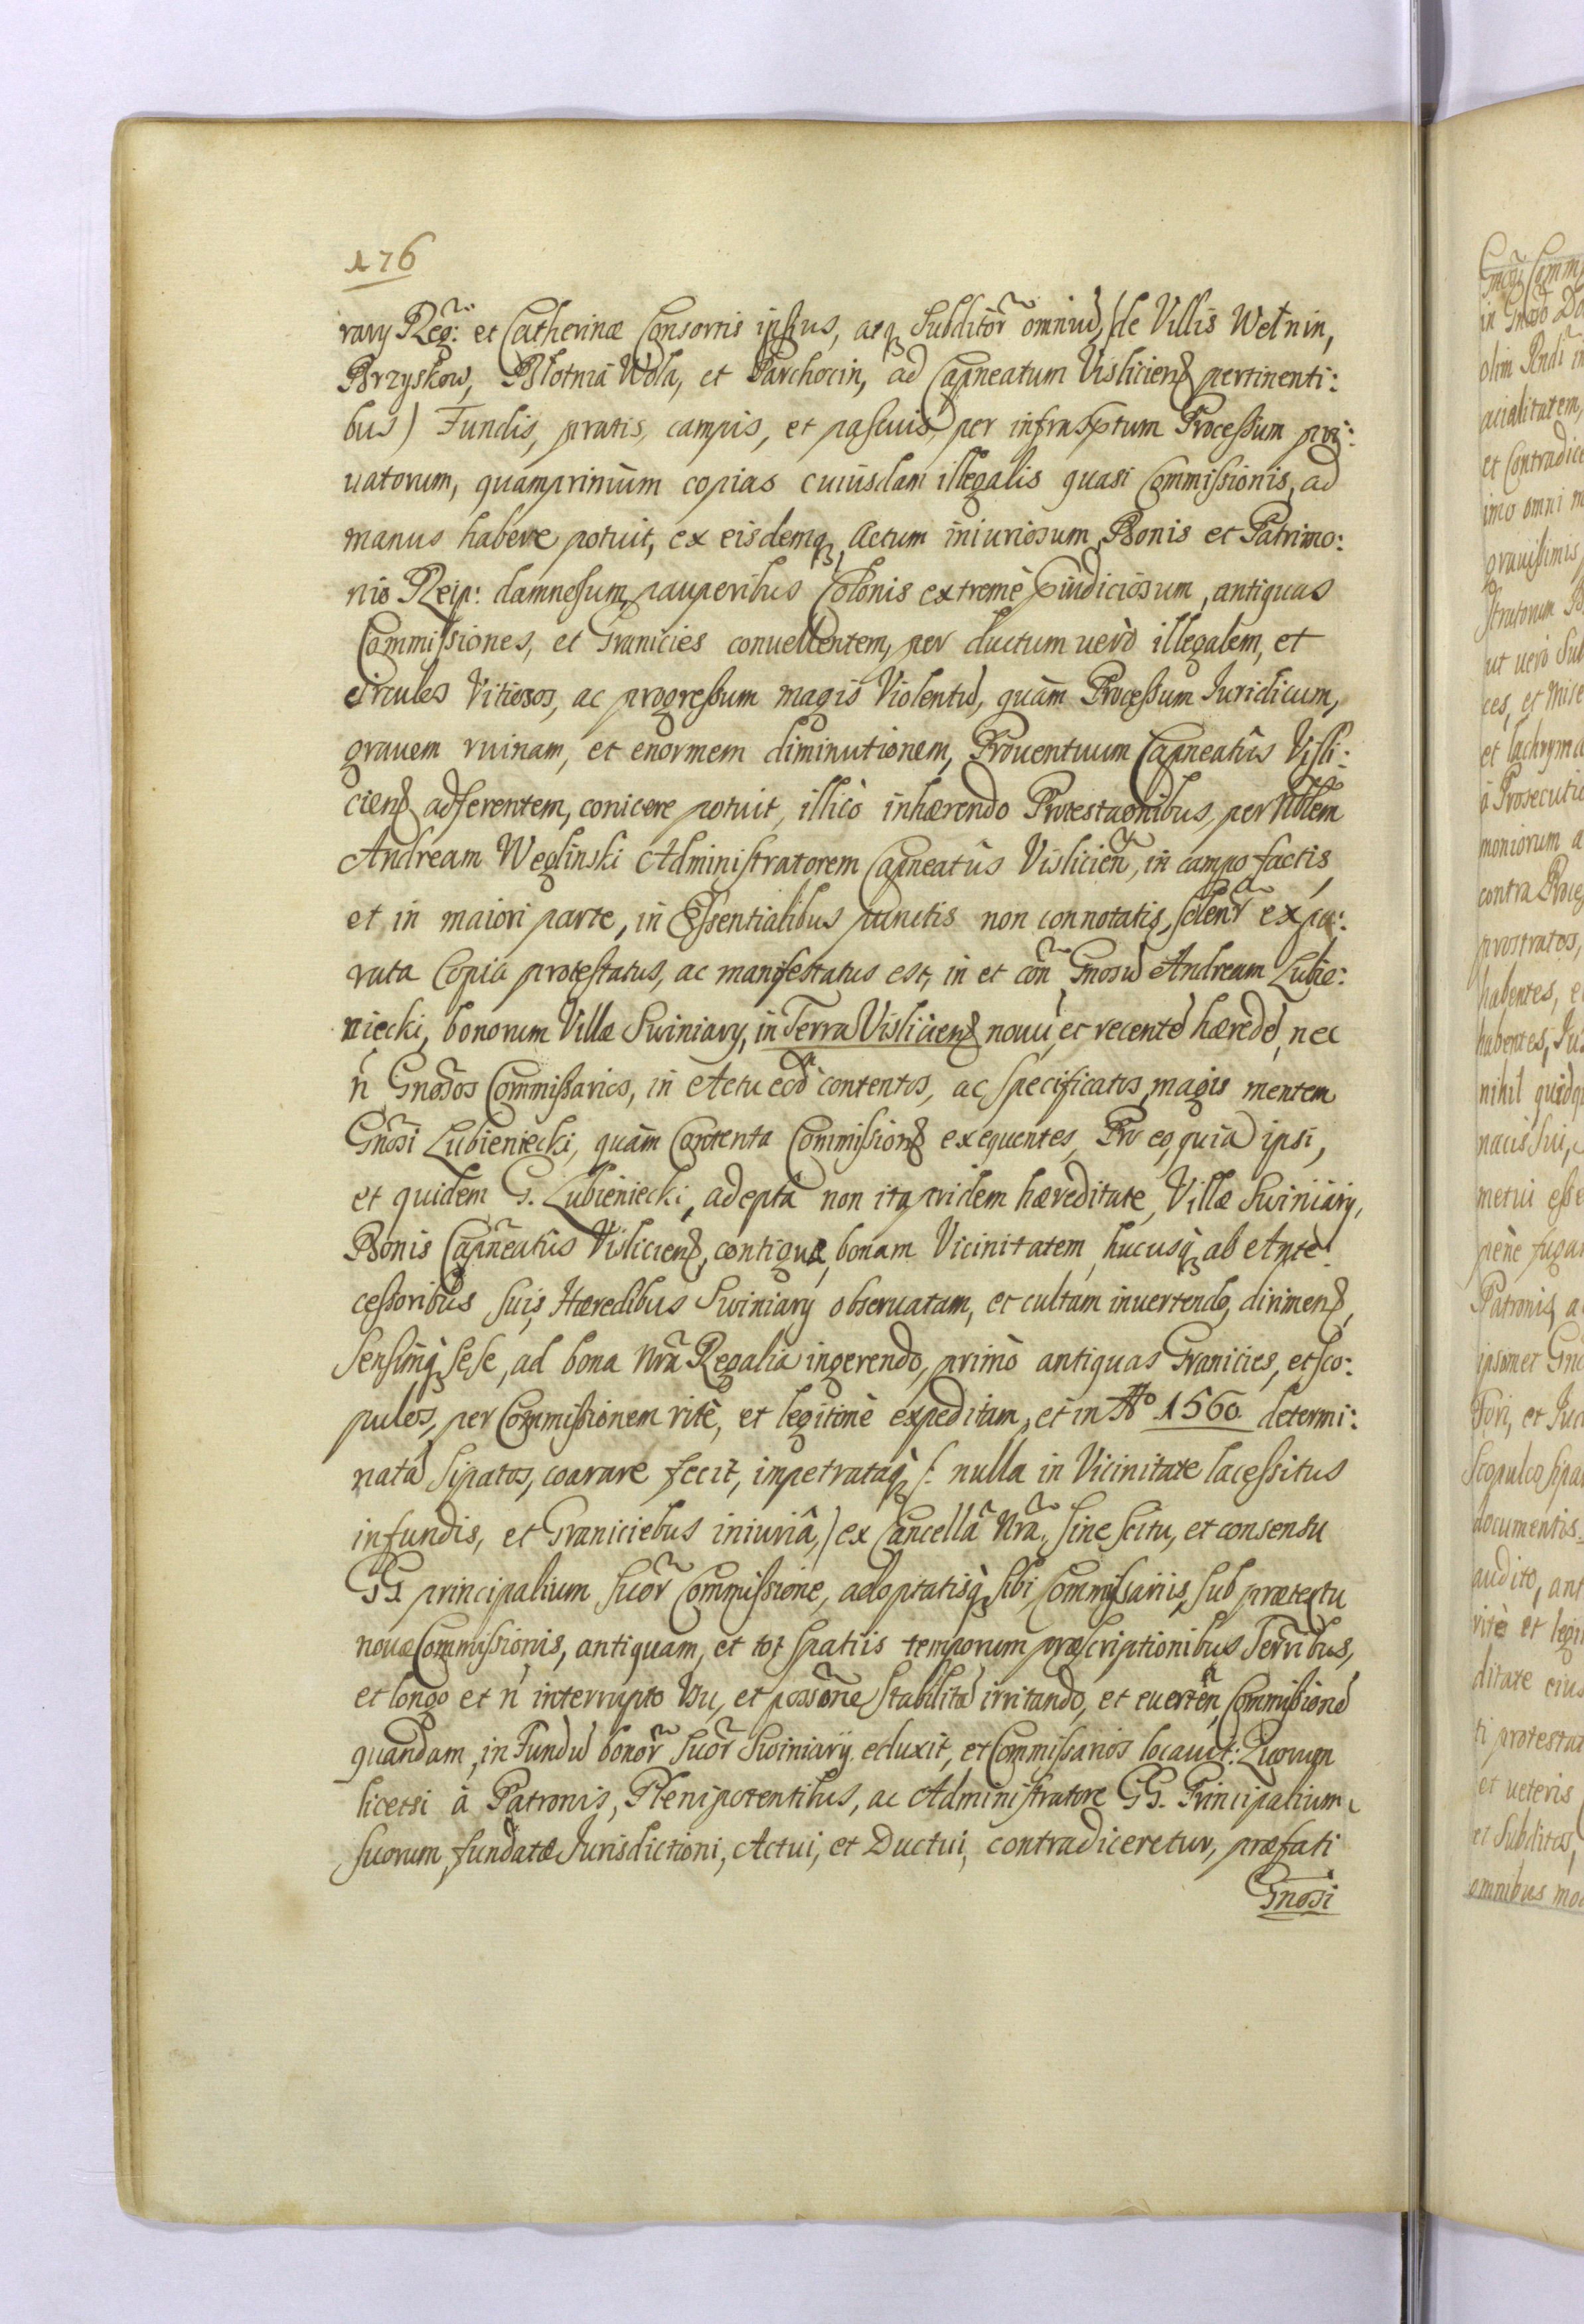 176
rary Reg: et Catherinæ Consortis ipsius, atq Subditor omniu, (de Villis Wełnin,
Brzyskow, Błotnia Wola, et Parchocin, ad Capneatum Visliciens pertinenti:
bus) Fundis, pratis, campis, et pascuis, per infrasptum Processum pri:
uatorum, quamprimum copias cuiusdam illegalis quasi Commissionis, ad
manus habere potuit, ex eisdemq, Actum iniuriosum, Bonis et Patrimo:
nio Reip: damnosum, pauperibus Colonis extremè piudiciosum, antiquas
Commissiones, et Granicies conuellentem, per ductum uerò illegalem, et
circulos Vitiosos, ac progressum magis Violentu, quàm Processum Iuridicum,
grauem ruinam, et enormem diminutionem, Prouentuum Capneatûs Visli:
ciens adferentem, conicere potuit, illicò inhærendo Protestaonibus, per Noblem
Andream Weglinski Administratorem Capneatûs Vislicien, in campo factis,
et in maiori parte, in Essentialibus punctis non connotatis, solenr expa:
rata Copia protestatus, ac manifestatus est, in et con Gnosu Andream Lubie:
niecki, bonorum Villæ Swiniary, in Terra Visliciens nouu, et recente hærede, nec
n Gnosos Commissarios, in Actu eod contentos, ac specificatos, magis mentem
Gnosi Lubieniecki, quàm Contenta Commissions exequentes, Pro eo, quia ipsi,
et quidem G. Lubieniecki, adeptâ non ita pridem hæreditate, Villæ Swiniary,
Bonis Capneatûs Visliciens, contiguæ, bonam Vicinitatem, hucusq ab Ante:
cessoribus suis, Hæredibus Swiniary obseruatam, et cultam inuertendo, dirimens,
sensimq sese, ad bona Nra Regalia ingerendo, primò antiquas Granicies, et sco:
pulos, per Commissionem ritè, et legitimè expeditam, et in Ao 1560 determi:
nata sipatos, coarare fecit, impetrataq (: nulla in Vicinitate lacessitus
in fundis, et Graniciebus iniuriâ,) ex Cancella Nra, sine scitu, et consensu
GG. principalium suor Commissione, adoptatisq sibi Commissariis, sub prætextu
nouæ Commissionis, antiquam, et tot spatiis temporum præscriptionibus Terribus,
et longo et n interrupto Usu, et possone stabilita irritando, et euerten, Commissione
quandam, in Fundu bonor suor Swiniary eduxit, et Commissarios locauit: Quorum
licetsi à Patronis, Plenipotentibus, ac Administratore GG. Principalium
suorum, fundatæ Jurisdictioni, Actui, et Ductui, contradiceretur, præfati
Gnosi